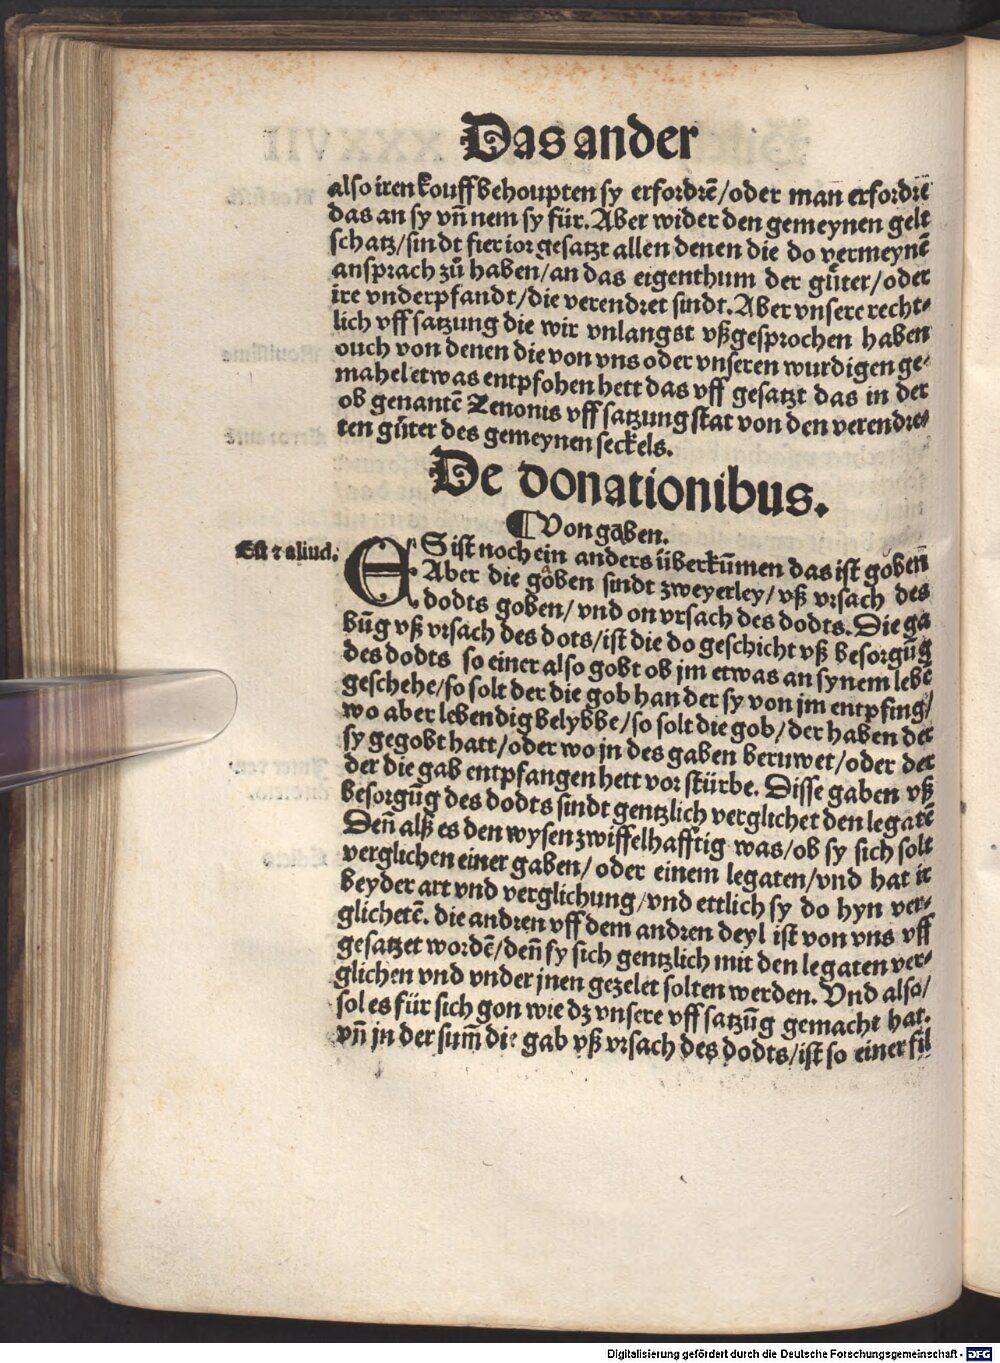 Das ander
also iren kouff behoupten sy erfordrē/oder man erfordre
das an sy vn̄ nem sy für. Aber wider den gemeynen gelt
schatz/sindt fier ior gesatzt allen denen die do vermeynē
ansprach zů haben/an das eigenthum der gůter/oder
ire vnderpfandt/die verendret sindt. Aber vnsere recht⸗
lich vff satzung die wir vnlangst vßgesprochen haben
ouch von denen die von vns oder vnseren wurdigen ge⸗
mahel etwas entpfohen hett das vff gesatzt das in der
ob genantē Zenonis vff satzung stat von den verendre⸗
ten gůter des gemeynen seckels.
De donationibus.
¶ Von gaben.
Est ⁊ aliud.
ES ist noch ein anders überkūmen das ist goben
Aber die goben sindt zweyerley/vß vrsach des
dodts goben/vnd on vrsach des dodts. Die ga
būg vß vrsach des dots/ist die do geschicht vß besorgūg
des dodts so einer also gobt ob jm etwas an synem lebē
geschehe/so solt der die gob han der sy von jm entpfing/
wo aber lebendig belybbe/so solt die gob/der haben der
sy gegobt hatt/oder wo jn des gaben beruwet/oder der
der die gab entpfangen hett vor stürbe. Disse gaben vß
besorgūg des dodts sindt gentzlich verglichet den legatē
Den̄ alß es den wysen zwiffelhafftig was/ob sy sich solt
verglichen einer gaben/oder einem legaten/vnd hat ir
beyder art vnd verglichung/vnd ettlich sy do hyn ver⸗
glichetē. die andren vff dem andren deyl ist von vns vff
gesatzet wordē/den̄ sy sich gentzlich mit den legaten ver⸗
glichen vnd vnder jnen gezelet solten werden. Vnd also/
sol es für sich gon wie dz vnsere vff satzūg gemacht hat.
vn̄ jn der sum̄ die gab vß vrsach des dodts/ist so einer sil
Digitalisierung gefördert durch die Deutsche Forschungsgemeinschaft - DFG